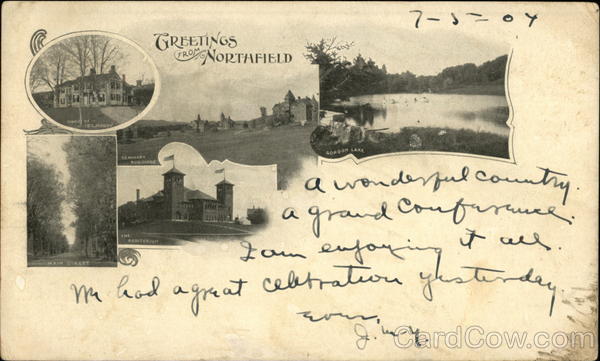 7-5-04
GREETINGS
FROM
NORTHFIELD
SEMINARY
BUILDINGS
GORDON LAKE
THE
AUDITORIUM
MAIN STREET
A wonderful country.
a grand conference.
I am enjoying it all.
We had a great celbration yesterday.
CardCow.com